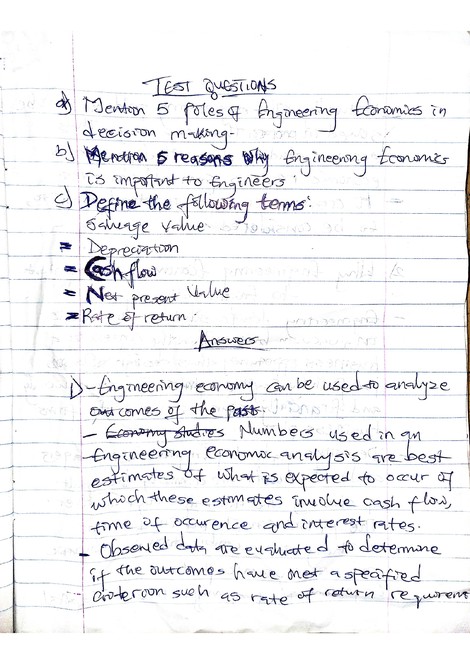 TEST QUESTIONS
a) Mention 5 roles of Engineering Economics in
decision making-
b) Mention 5 reasons Why Engineering Economics
is important to Engineers:
c) Define the following terms:
Salvage Value
= Depreciation
= Cash flow
= Net present Value
= Rate of return:
Answers
1) - Engineering economy can be used to analyze
outcomes of the past.
- Economy studies Numbers used in an
Engineering economic analysis are best
estimates of what is expected to occur of
which these estimates involve cash flow,
time of occurence and interest rates.
- Observed data are evaluated to determine
if the outcomes have met a specified
such as rate of return requirement